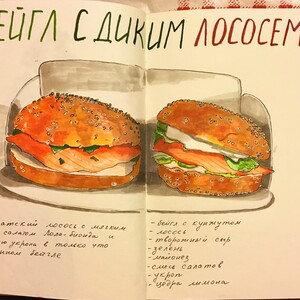 ЕЙГЛ С ДИКИМ ЛОСОСЕМ
атский лосось с мягким
салатом Лоло-бионда и
укропа в только что
бейгле
- бейгл с кунжутом
- лосось
- творожный сыр
- зелень
- майонез
- смесь салатов
- укроп
- цедра лимона